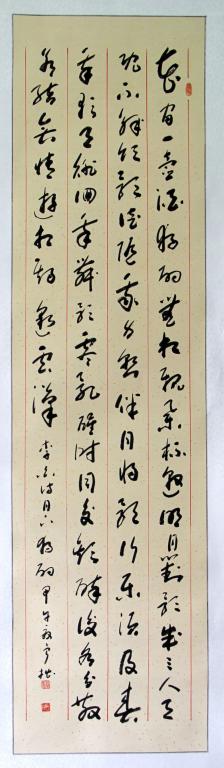 花間一壺酒獨酌無相親舉杯邀明月對影成三人月
既不解飲影徒隨我身暫伴月將影行樂須及春
我歌月徘徊我舞影零亂醒時同交歡醉後各分散
永結無情遊相期邈雲漢 李白诗月下獨酌 甲午